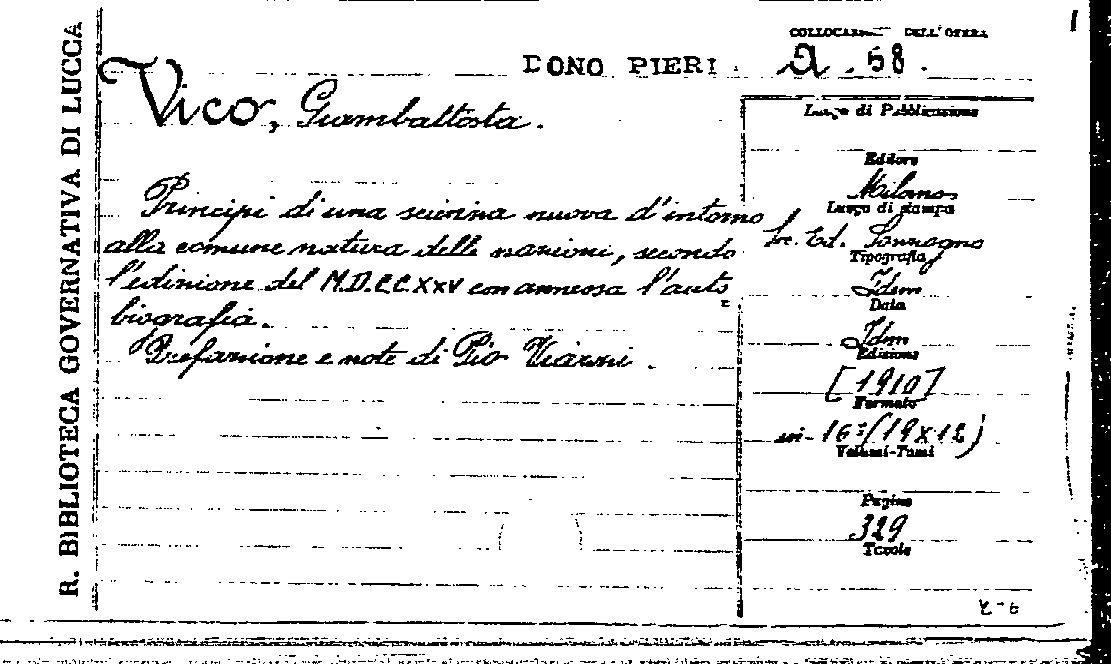 R. BIBLIOTECA GOVERNATIVA DI LUCCA
COLLOCAZIONE DELL'OPERA
DONO PIERI. a. 58.
Vico, Giambattista.
Luogo di Pubblicazione
Editore
Principi di una scienza nuova d'intorno
alla comune natura delle nazioni, secondo
l'edizione del M.D.C.C.XXV con annessa l'auto
biografia.
Prefazione e note di Pio Viazzi.
Milano
Luogo di stampa
Soc. Ed. Sonzogno
Tipografia
Idem
Data
Idem
Edizione
[1910]
Formato
in-16º (19x12)
Volumi-Tomi
Pagine
329
Tavole